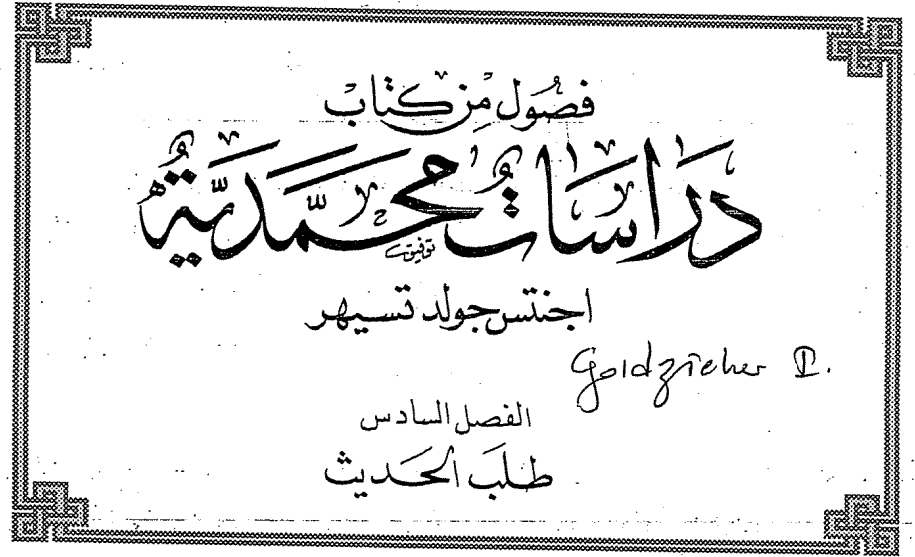 فصُول مِن كتاب
دَراسَاتٌ محمَّديَّةٌ
توفيق
اجنتس جولد تسيهر
Goldzieher I.
الفصل السادس
طلَبَ الحَديث